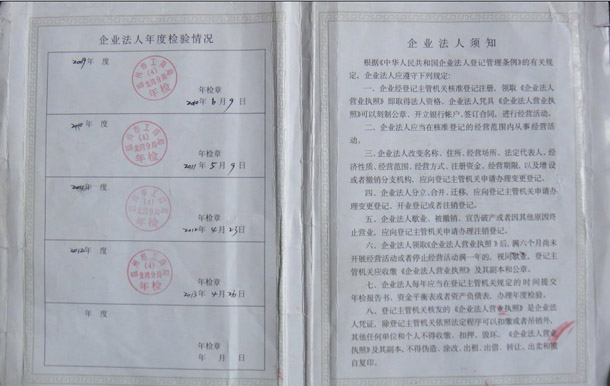 企业法人年度检验情况
2009年 度
年检
年检章
2010年6月9日
2010年 度
年检
年检章
2011年5月9日
2011年 度
年检
年检章
2012年4月23日
2012年 度
年检
年检章
2013年4月26日
年 度
年检章
年 月 日
企业法人须知
根据《中华人民共和国企业法人登记管理条例》的有关规
定,企业法人应遵守下列规定:
一、企业经登记主管机关核准登记注册,领取《企业法人
营业执照》即取得法人资格。企业法人凭具《企业法人营业执
照》可以刻制公章、开立银行帐户、签订合同,进行经营活动。
二、企业法人应当在核准登记的经营范围内从事经营活
动。
三、企业法人改变名称、住所、经营场所、法定代表人、经
济性质、经营范围、经营方式、注册资金、经营期限,以及增设
或者撤销分支机构,应向登记主管机关申请办理变更登记。
四、企业法人分立、合并、迁移,应向登记主管机关申请办
理变更登记、开业登记或者注销登记。
五、企业法人歇业、被撤销、宣告破产或者因其他原因终
止营业,应向登记主管机关申请办理注销登记。
六、企业法人领取《企业法人营业执照》后,满六个月尚未
开展经营活动或者停止经营活动满一年的,视同歇业,登记主
管机关应收缴《企业法人营业执照》及其副本和公章。
七、企业法人每年应当在登记主管机关规定的时间提交
年检报告书、资金平衡表或者资产负债表,办理年度检验。
八、登记主管机关核发的《企业法人营业执照》是企业法
人凭证,除登记主管机关依照法定程序可以扣缴或者吊销外,
其他任何单位和个人不得收缴、扣押、毁坏。《企业法人营业
执照》及其副本,不得伪造、涂改、出租、出借、转让、出卖和擅
自复印。